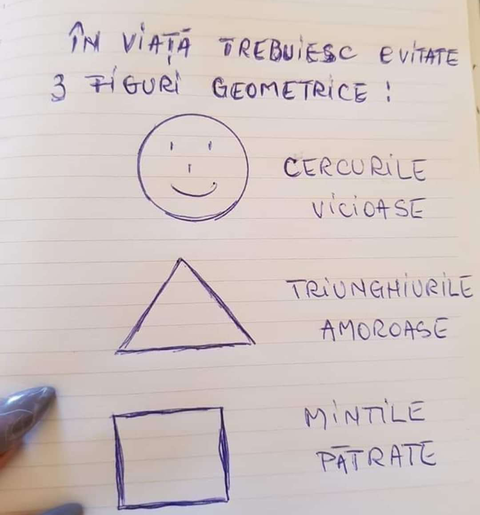 ÎN VIAȚĂ TREBUIESC EVITATE
3 FIGURI GEOMETRICE!
CERCURILE
VICIOASE
TRIUNGHIURILE
AMOROASE
MINTILE
PĂTRATE